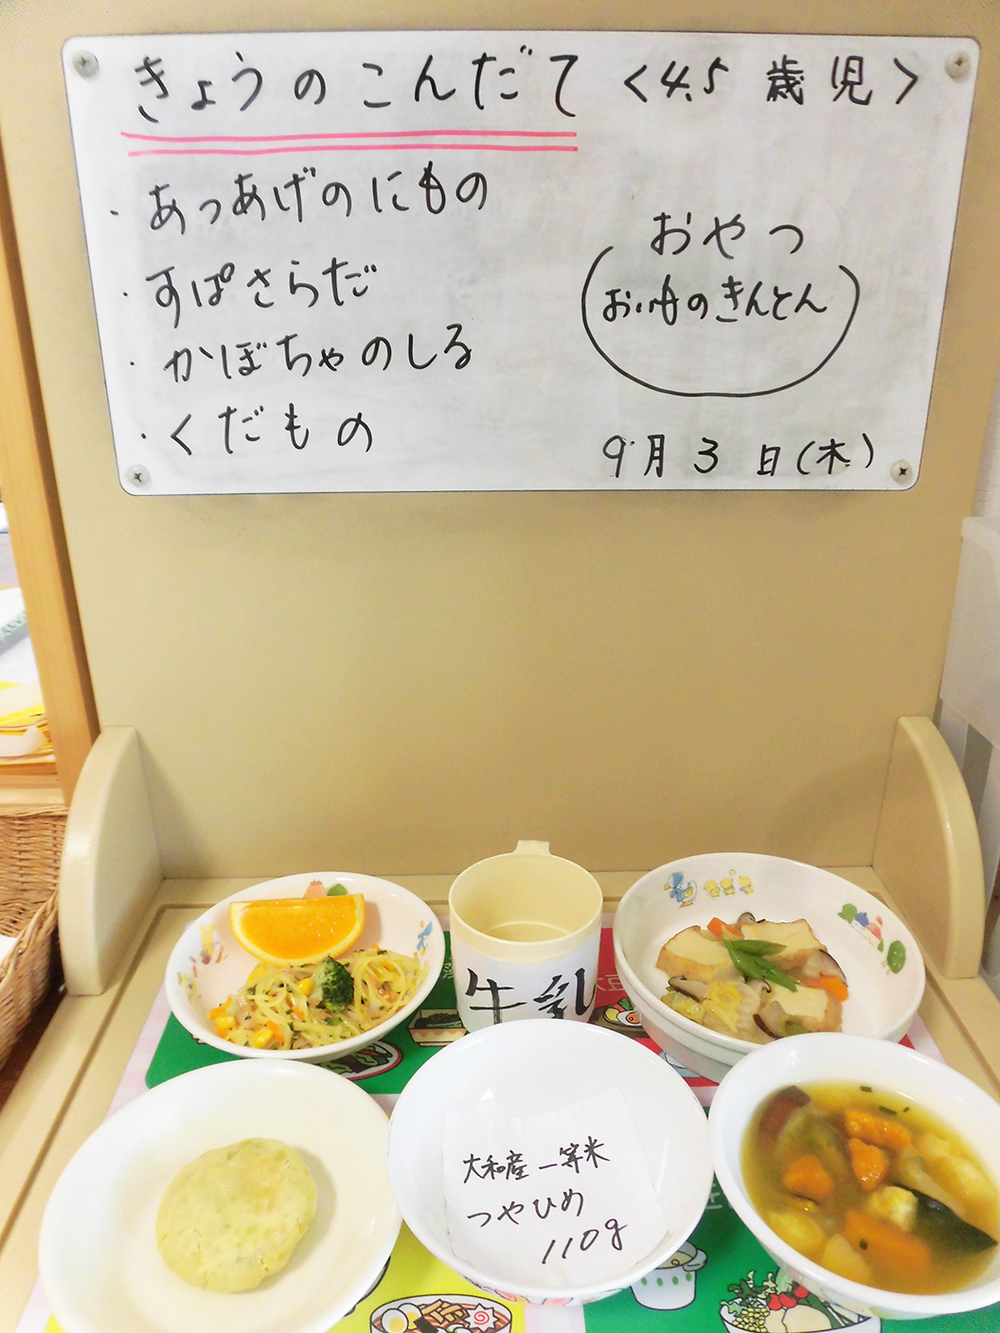 きょうのこんだて <4.5歳児>
・あつあげのにもの
・すぱさらだ
・かぼちゃのしる
・くだもの
おやつ
おいものきんとん
9月3日(木)
牛乳
大和産一等米
つやひめ
110g